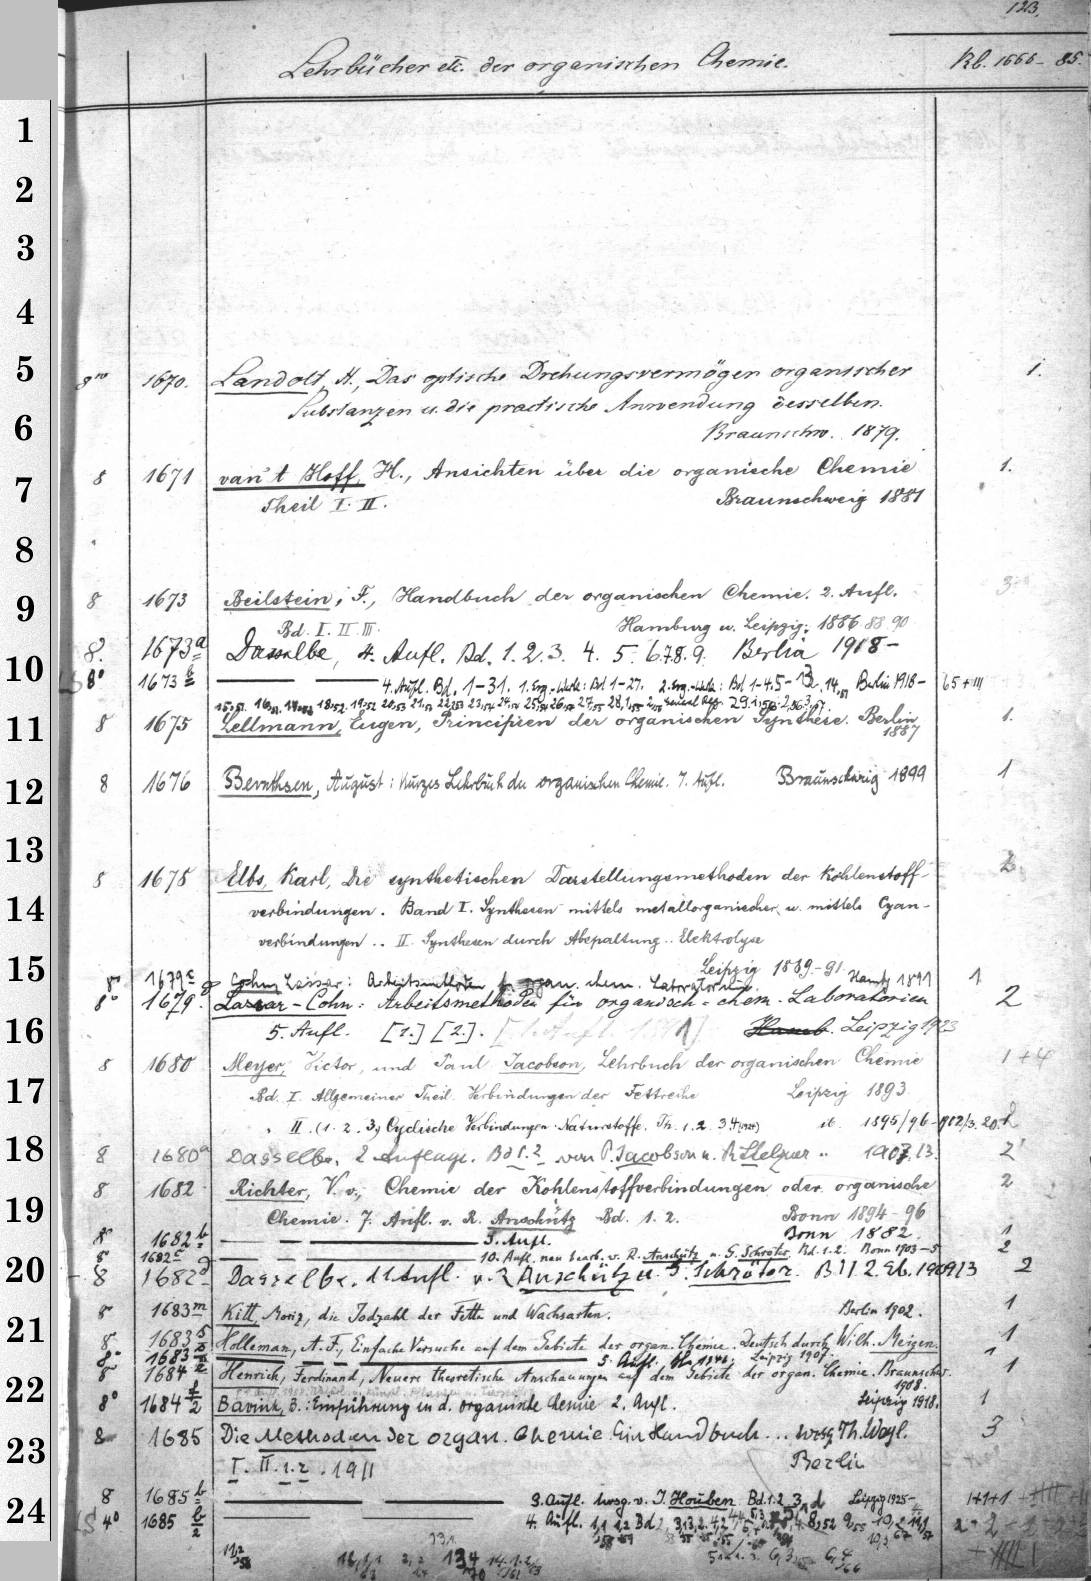 123.
Lehrbücher etc. der organischen Chemie. Kb. 1666-85.
1
2
3
4
5 8vo 1670. Landolt, H., Das optische Drehungsvermögen organischer 1.
Substanzen u. die practische Anwendung desselben.
6 Braunschw. 1879.
8 1671 van't Hoff, H., Ansichten über die organische Chemie 1.
7 Theil I. II. Braunschweig 1881
8
9 8 1673 Beilstein, F., Handbuch der organischen Chemie. 2. Aufl. 3
Bd. I. II. III. Hamburg u. Leipzig. 1886. 88. 90
8. 1673a Dasselbe, 4. Aufl. Bd. 1. 2. 3. 4. 5. 6.7.8.9. Berlin 1918-
10 8° 1673b 4. Aufl. Bd. 1-31. 1. Erg.-Werk: Bd 1-27. 2. Erg.-Werk: Bd 1-4. 5-13. 14. Berlin 1918- 65+III
11 8 1675 Lellmann, Eugen, Principien der organischen Synthese. Berlin 1.
1887
12 8 1676 Bernthsen, August: Kurzes Lehrbuch der organischen Chemie. 7. Aufl. Braunschweig 1899 1
13
8 1678 Elbs, Karl, Die synthetischen Darstellungsmethoden der Kohlenstoff- 2
14 verbindungen. Band I. Synthesen mittels metallorganischer u. mittels Cyan-
verbindungen .. II. Synthesen durch Abspaltung .. Elektrolyse
15 Leipzig 1889-91
8 1679c Cohn, Lassar: Arbeitsmethoden f. organ. chem. Laboratorien. Hambg 1891 1
8° 1679. Lassar-Cohn: Arbeitsmethoden für organisch-chem. Laboratorien 2
16 5. Aufl. [1.] [2.]. Hamb. Leipzig 1923
8 1680 Meyer, Victor, und Paul Jacobson, Lehrbuch der organischen Chemie 1+4
17 Bd. I. Allgemeiner Theil. Verbindungen der Fettreihe Leipzig 1893
" II. (1. 2. 3) Cyclische Verbindungen. Naturstoffe. Th. 1. 2. 3 ib. 1895/96-1902/3. 20.
18 8 1680a Dasselbe, 2. Auflage. Bd 1. 2 von P. Jacobson u. R. Stelzner " 1907. 13. 2
8 1682 Richter, V. v., Chemie der Kohlenstoffverbindungen oder organische 2
19 Chemie. 7. Aufl. v. R. Anschütz Bd. 1. 2. Bonn 1894-96
8 1682b 3. Aufl. Bonn 1882. 1
8 1682c 10. Aufl. neu bearb. v. R. Anschütz u. G. Schröter. Bd. 1. 2. Bonn 1903-5 2
20 8 1682d Dasselbe. 11. Aufl. v. R Anschütz u. G. Schröter. Bd 1 2. Eb. 1909/13 2
8 1683m Kitt, Moriz, die Jodzahl der Fette und Wachsarten. Berlin 1902. 1
21 8 1683 Holleman, A. F., Einfache Versuche auf dem Gebiete der organ. Chemie. Deutsch durch Wilh. Meigen. 1
8° 1683 5. Aufl. Leipzig 1907. 1
8 1684 Henrich, Ferdinand, Neuere theoretische Anschauungen auf dem Gebiete der organ. Chemie. Braunschw. 1
1908.
22 8° 1684 Bavink, B.: Einführung in d. organische Chemie 2. Aufl. Leipzig 1918. 1
23 8 1685 Die Methoden der organ. Chemie. Ein Handbuch ... hrsg Th. Weyl. 3
I. II. 1. 2. 1911 Berlin
8 1685b 3. Aufl. hrsg. v. J. Houben. Bd. 1. 2 3 Leipzig 1925- 1+1+1
24 4° 1685 4. Aufl.